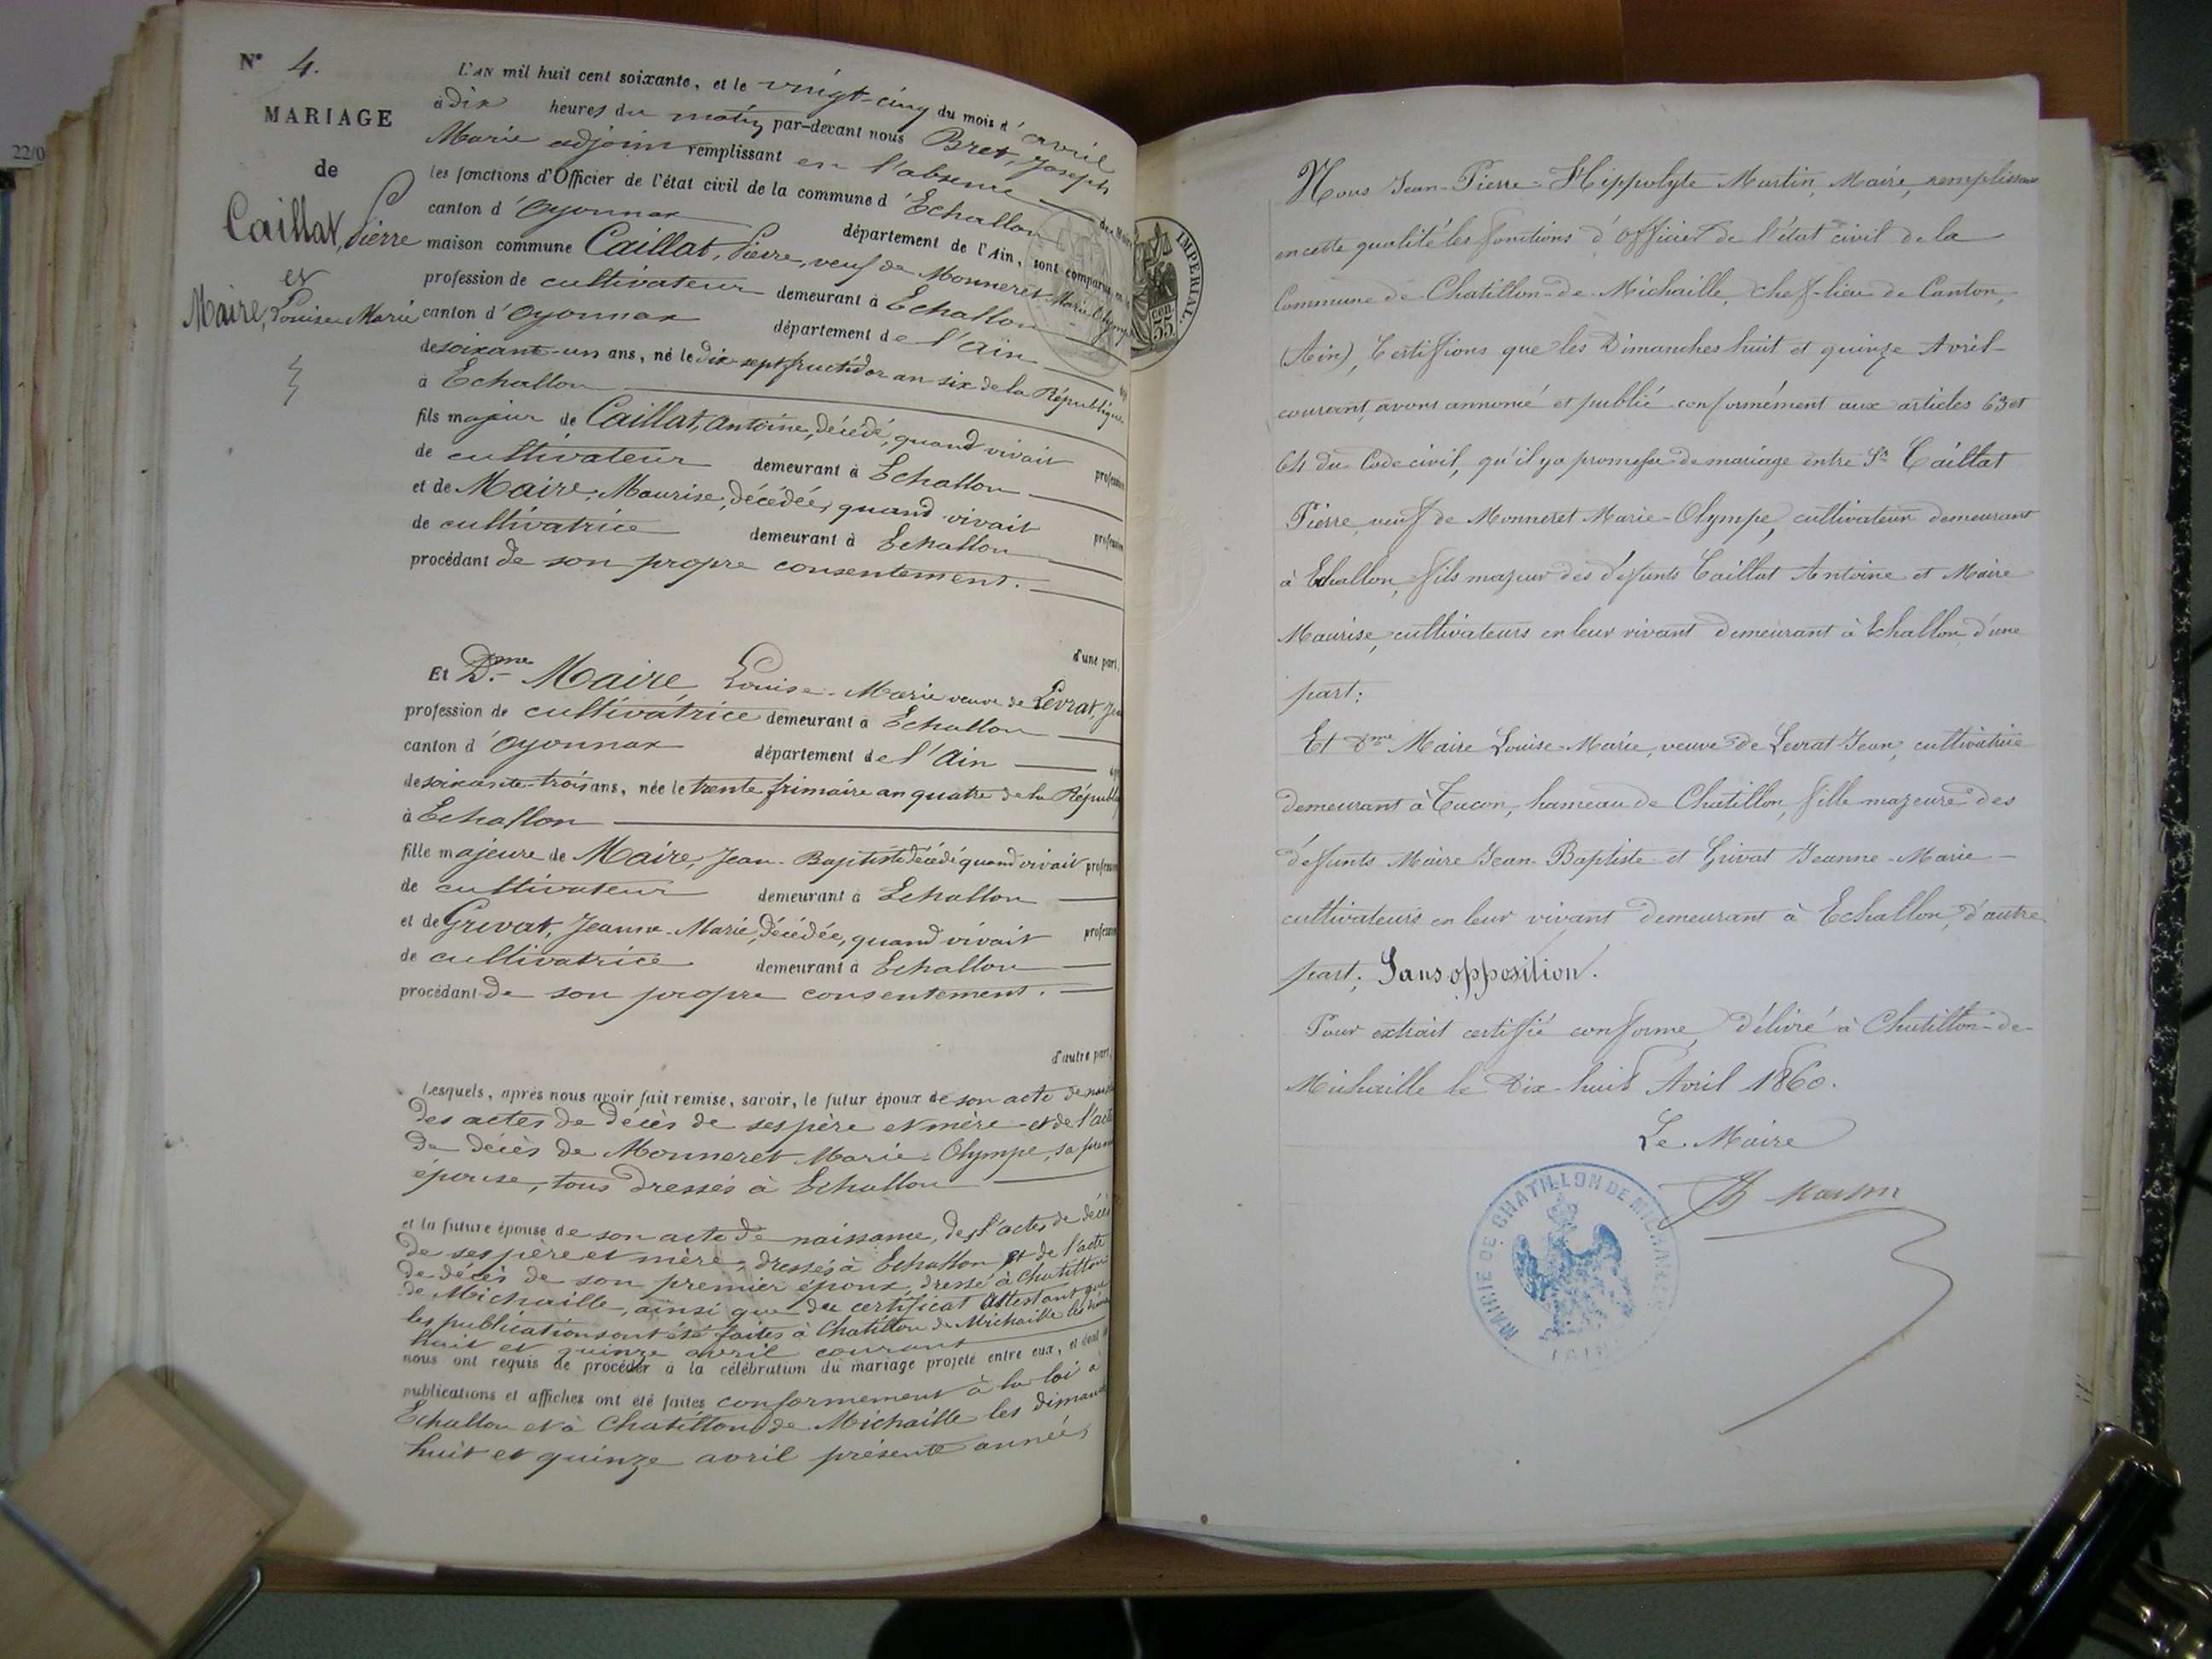 22/0
N° 4.
MARIAGE
de
Caillat, Pierre
et
Maire, Louise Marie
L'AN mil huit cent soixante, et le vingt-cinq du mois d'avril
à dix heures du matin par-devant nous Bret, Joseph
Marie adjoint remplissant en l'absence du Maire
les fonctions d'Officier de l'état civil de la commune d'Echallon
canton d'Oyonnax département de l'Ain, sont comparus en la
maison commune Caillat, Pierre, veuf de Monneret Marie-Olympe
profession de cultivateur demeurant à Echallon
canton d'Oyonnax département de l'Ain
de soixante-un ans, né le dix-sept fructidor an six de la République
à Echallon
fils majeur de Caillat, Antoine, décédé, quand vivait profession
de cultivateur demeurant à Echallon
et de Maire, Maurise, décédée, quand vivait profession
de cultivatrice demeurant à Echallon
procédant de son propre consentement.
d'une part.
Et Dme Maire Louise-Marie veuve de Levrat, Jean
profession de cultivatrice demeurant à Echallon
canton d'Oyonnax département de l'Ain
de soixante-trois ans, née le trente frimaire an quatre de la Républ
à Echallon
fille majeure de Maire, Jean-Baptiste décédé quand vivait profession
de cultivateur demeurant à Echallon
et de Grivat, Jeanne-Marie, décédée, quand vivait profession
de cultivatrice demeurant à Echallon
procédant de son propre consentement.
d'autre part,
Lesquels, après nous avoir fait remise, savoir, le futur époux de son acte de naiss
des actes de décès de ses père et mère et de l'acte
de décès de Monneret Marie-Olympe, sa prem
épouse, tous dressés à Echallon
et la future épouse de son acte de naissance, des actes de décès
de ses père et mère, dressés à Echallon et de l'acte
de décès de son premier époux, dressé à Chatillon
de Michaille, ainsi que du certificat attestant que
les publications ont été faites à Chatillon de Michaille les dim
huit et quinze avril courant
nous ont requis de procéder à la célébration du mariage projeté entre eux, et dont les
publications et affiches ont été faites conformement à la loi à
Echallon et à Chatillon de Michaille les dimanch
huit et quinze avril présente année,
IMPERIAL.
cen. 35
Nous Jean-Pierre-Hippolyte Martin, Maire, remplissant
en cette qualité les fonctions d'officier de l'état civil de la
Commune de Chatillon-de-Michaille, chef-lieu de Canton,
(Ain), Certifions que les Dimanches huit et quinze Avril
courant, avons annoncé et publié conformément aux articles 63 et
64 du Code civil, qu'il y a promesse de mariage entre Sr Caillat
Pierre, veuf de Monneret Marie-Olympe, cultivateur demeurant
à Echallon, fils majeur des défunts Caillat Antoine et Maire
Maurise, cultivateurs en leur vivant demeurant à Echallon, d'une
part:
Et Dme Maire Louise-Marie, veuve de Levrat Jean, cultivatrice
demeurant à Cucon, hameau de Chatillon, fille majeure des
défunts Maire Jean-Baptiste et Grivat Jeanne-Marie
cultivateurs en leur vivant demeurant à Echallon, d'autre
part; Sans opposition.
Pour extrait certifié conforme, délivré à Chatillon-de-
Michaille le Dix-huit Avril 1860.
Le Maire
H Martin
MAIRIE DE CHATILLON DE MICHAILLE
(AIN)